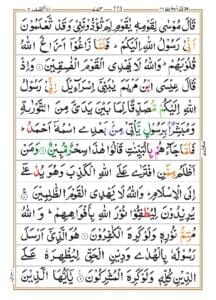 قَالَ مُوْسٰى لِقَوْمِهٖ يٰقَوْمِ لِمَ تُؤْذُوْنَنِىْ وَقَدْ تَّعْلَمُوْنَ
اَنِّىْ رَسُوْلُ اللّٰهِ اِلَيْكُمْ ؕ فَلَمَّا زَاغُوْۤا اَزَاغَ اللّٰهُ
قُلُوْبَهُمْ ؕ وَاللّٰهُ لَا يَهْدِى الْقَوْمَ الْفٰسِقِيْنَ ۞ وَاِذْ
قَالَ عِيْسَى ابْنُ مَرْيَمَ يٰبَنِىْۤ اِسْرَآءِيْلَ اِنِّىْ رَسُوْلُ
اللّٰهِ اِلَيْكُمْ مُّصَدِّقًا لِّمَا بَيْنَ يَدَىَّ مِنَ التَّوْرٰىةِ
وَمُبَشِّرًۢا بِرَسُوْلٍ يَّاْتِىْ مِنْۢ بَعْدِى اسْمُهٗۤ اَحْمَدُ ؕ
فَلَمَّا جَآءَهُمْ بِالْبَيِّنٰتِ قَالُوْا هٰذَا سِحْرٌ مُّبِيْنٌ ۞ وَمَنْ
اَظْلَمُ مِمَّنِ افْتَرٰى عَلَى اللّٰهِ الْكَذِبَ وَهُوَ يُدْعٰۤى
اِلَى الْاِسْلَامِ ؕ وَاللّٰهُ لَا يَهْدِى الْقَوْمَ الظّٰلِمِيْنَ ۞
يُرِيْدُوْنَ لِيُطْفِـُٔوْا نُوْرَ اللّٰهِ بِاَفْوَاهِهِمْ ؕ وَاللّٰهُ
مُتِمُّ نُوْرِهٖ وَلَوْ كَرِهَ الْكٰفِرُوْنَ ۞ هُوَ الَّذِىْۤ اَرْسَلَ
رَسُوْلَهٗ بِالْهُدٰى وَدِيْنِ الْحَقِّ لِيُظْهِرَهٗ عَلَى
الدِّيْنِ كُلِّهٖ وَلَوْ كَرِهَ الْمُشْرِكُوْنَ ۞ يٰۤاَيُّهَا الَّذِيْنَ